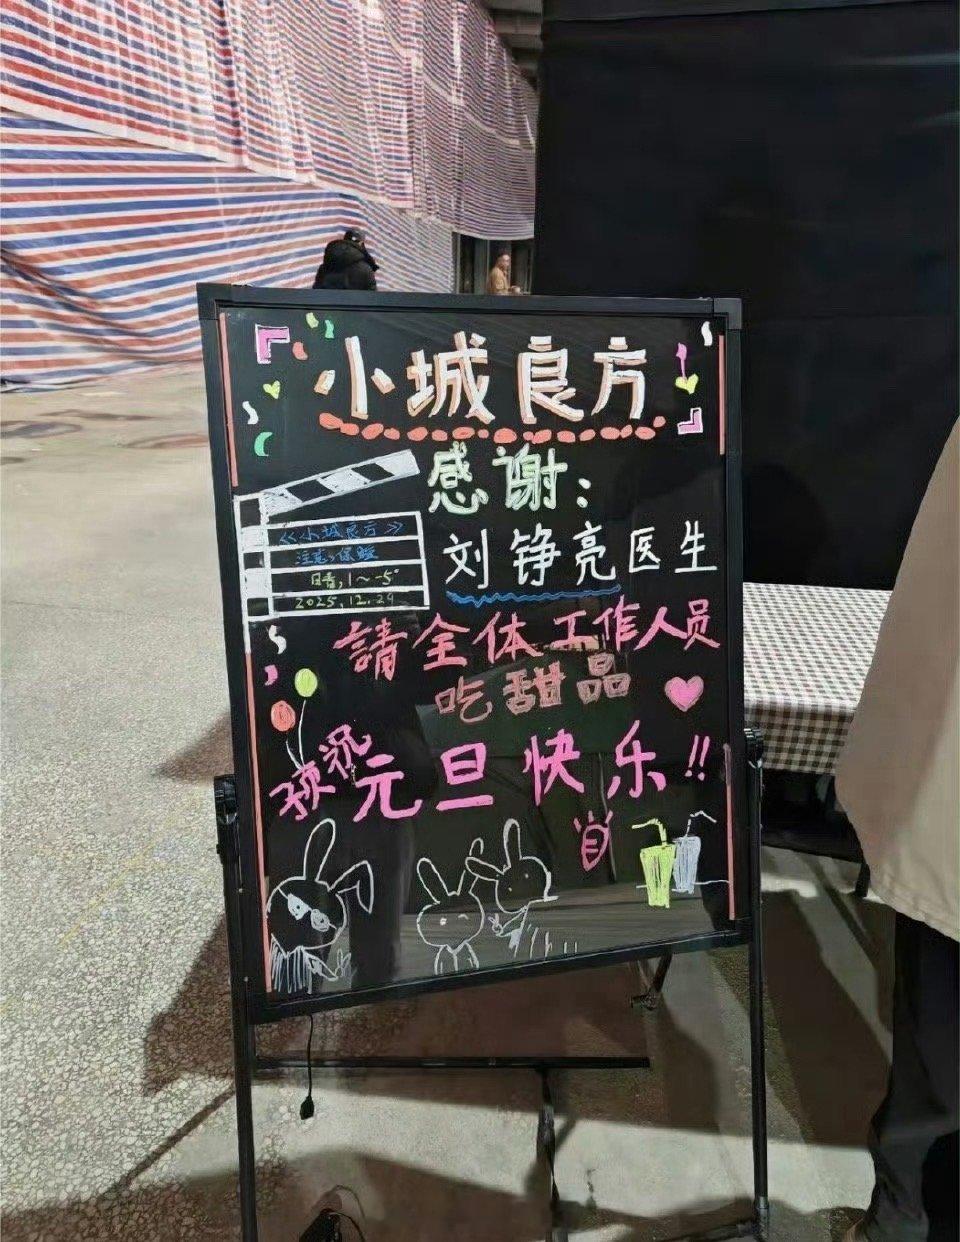 小城良方
感谢：
刘铮亮医生
《小城良方》
注意,保暖
晴,1～-5°
2025.12.29
請全体工作人员
吃甜品
预祝
元旦快乐!!